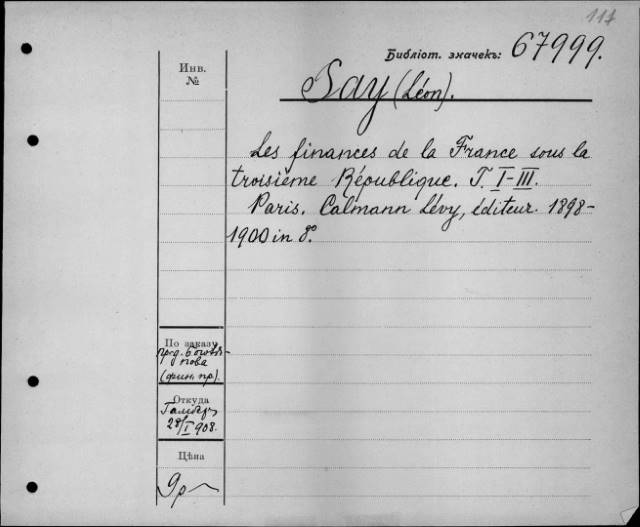 117
Библіот. значекъ: 67999.
Инв.
№
Say (Léon).
Les finances de la France sous la
troisième République. T. I-III.
Paris. Calmann Lévy, éditeur. 1898-
1900 in 8º.
По заказу
(фин. пр).
Откуда
28/I 908.
Цѣна
9р